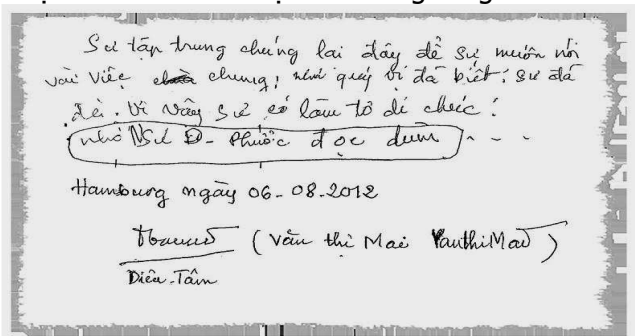 Sư tập trung chúng lại đây để sư muốn nói
vài việc chung, như quý vị đã biết: sư đã
già. Vì vậy sư có làm tờ di chúc!
nhờ NSư D- Phước đọc dùm - - -
Hamburg ngày 06-08-2012
(Văn thị Mai VanthiMai)
Diêu-Tâm